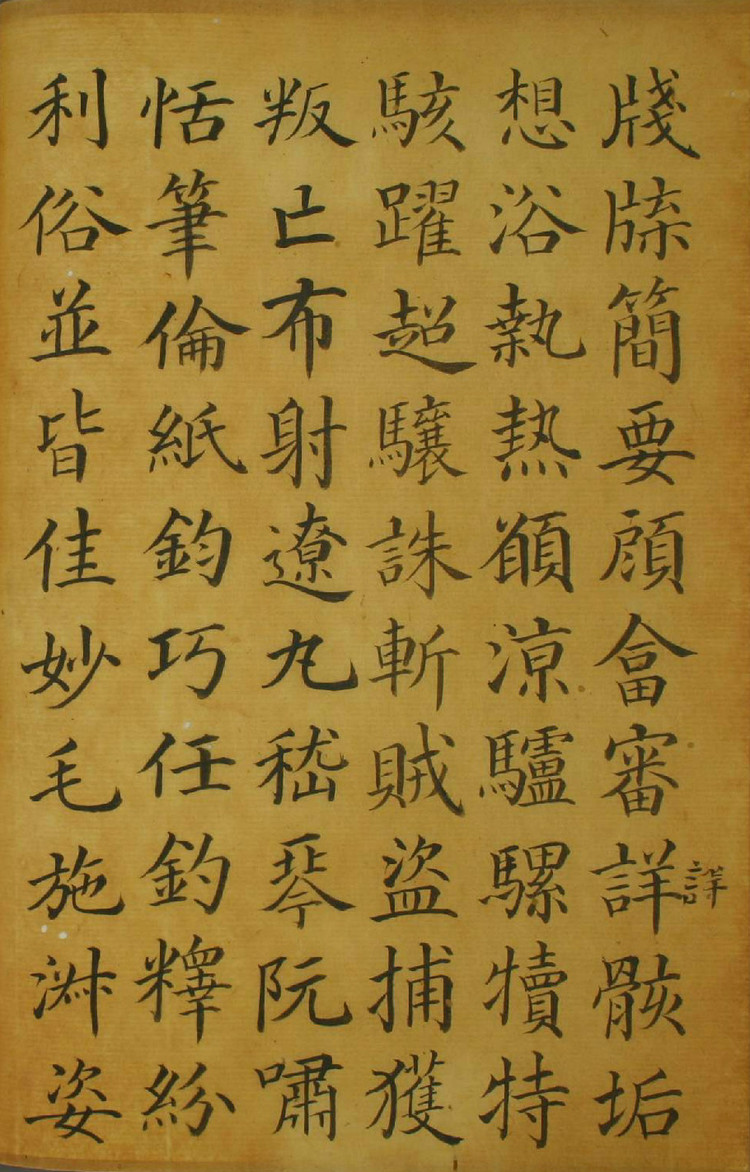 牋牒簡要顧畣審詳骸垢
詳
想浴執熱願涼驢騾犢特
駭躍超驤誅斬賊盜捕獲
叛亡布射遼丸嵇琴阮嘯
恬筆倫紙鈞巧任釣釋紛
利俗並皆佳妙毛施淑姿